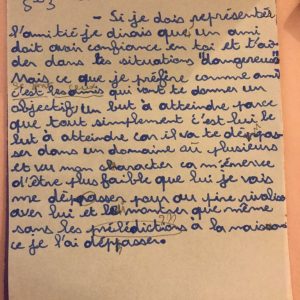 - Si je dois représenter
l'amitié je dirais que un ami
doit avoir confiance en toi et t'ai
der dans les situations dangereuses
Mais ce que je préfère comme ami
c'est les qui vont te donner un
objectif, un but à atteindre parce
que tout simplement c'est lui le
but à atteindre car il va te dépas
ser dans un domaine ou plusieurs
et vu mon character ça m'énerve
d'être plus faible que lui je vais
me dépasser pour au pire rivaliser
avec lui et le montrer que même
sans les prélédictions à la naissan
ce je l'ai déppasser.